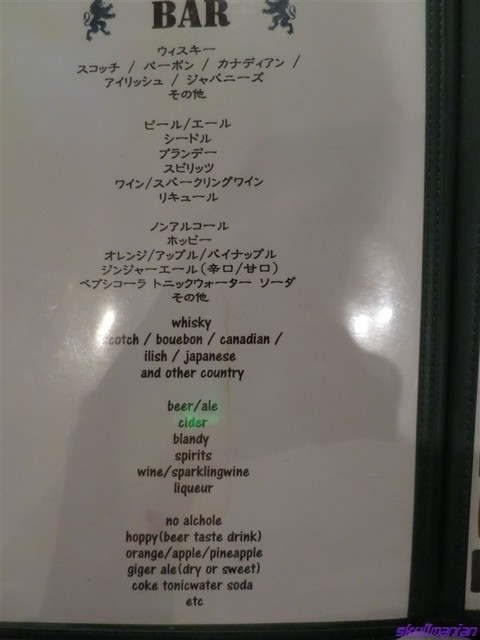 BAR
ウィスキー
スコッチ / バーボン / カナディアン /
アイリッシュ / ジャパニーズ
その他
ビール/エール
シードル
ブランデー
スピリッツ
ワイン/スパークリングワイン
リキュール
ノンアルコール
ホッピー
オレンジ/アップル/パイナップル
ジンジャーエール(辛口/甘口)
ペプシコーラ トニックウォーター ソーダ
その他
whisky
scotch / bouebon / canadian /
ilish / japanese
and other country
beer/ale
cider
blandy
spirits
wine/sparklingwine
liqueur
no alchole
hoppy(beer taste drink)
orange/apple/pineapple
giger ale(dry or sweet)
coke tonicwater soda
etc
skullmanian